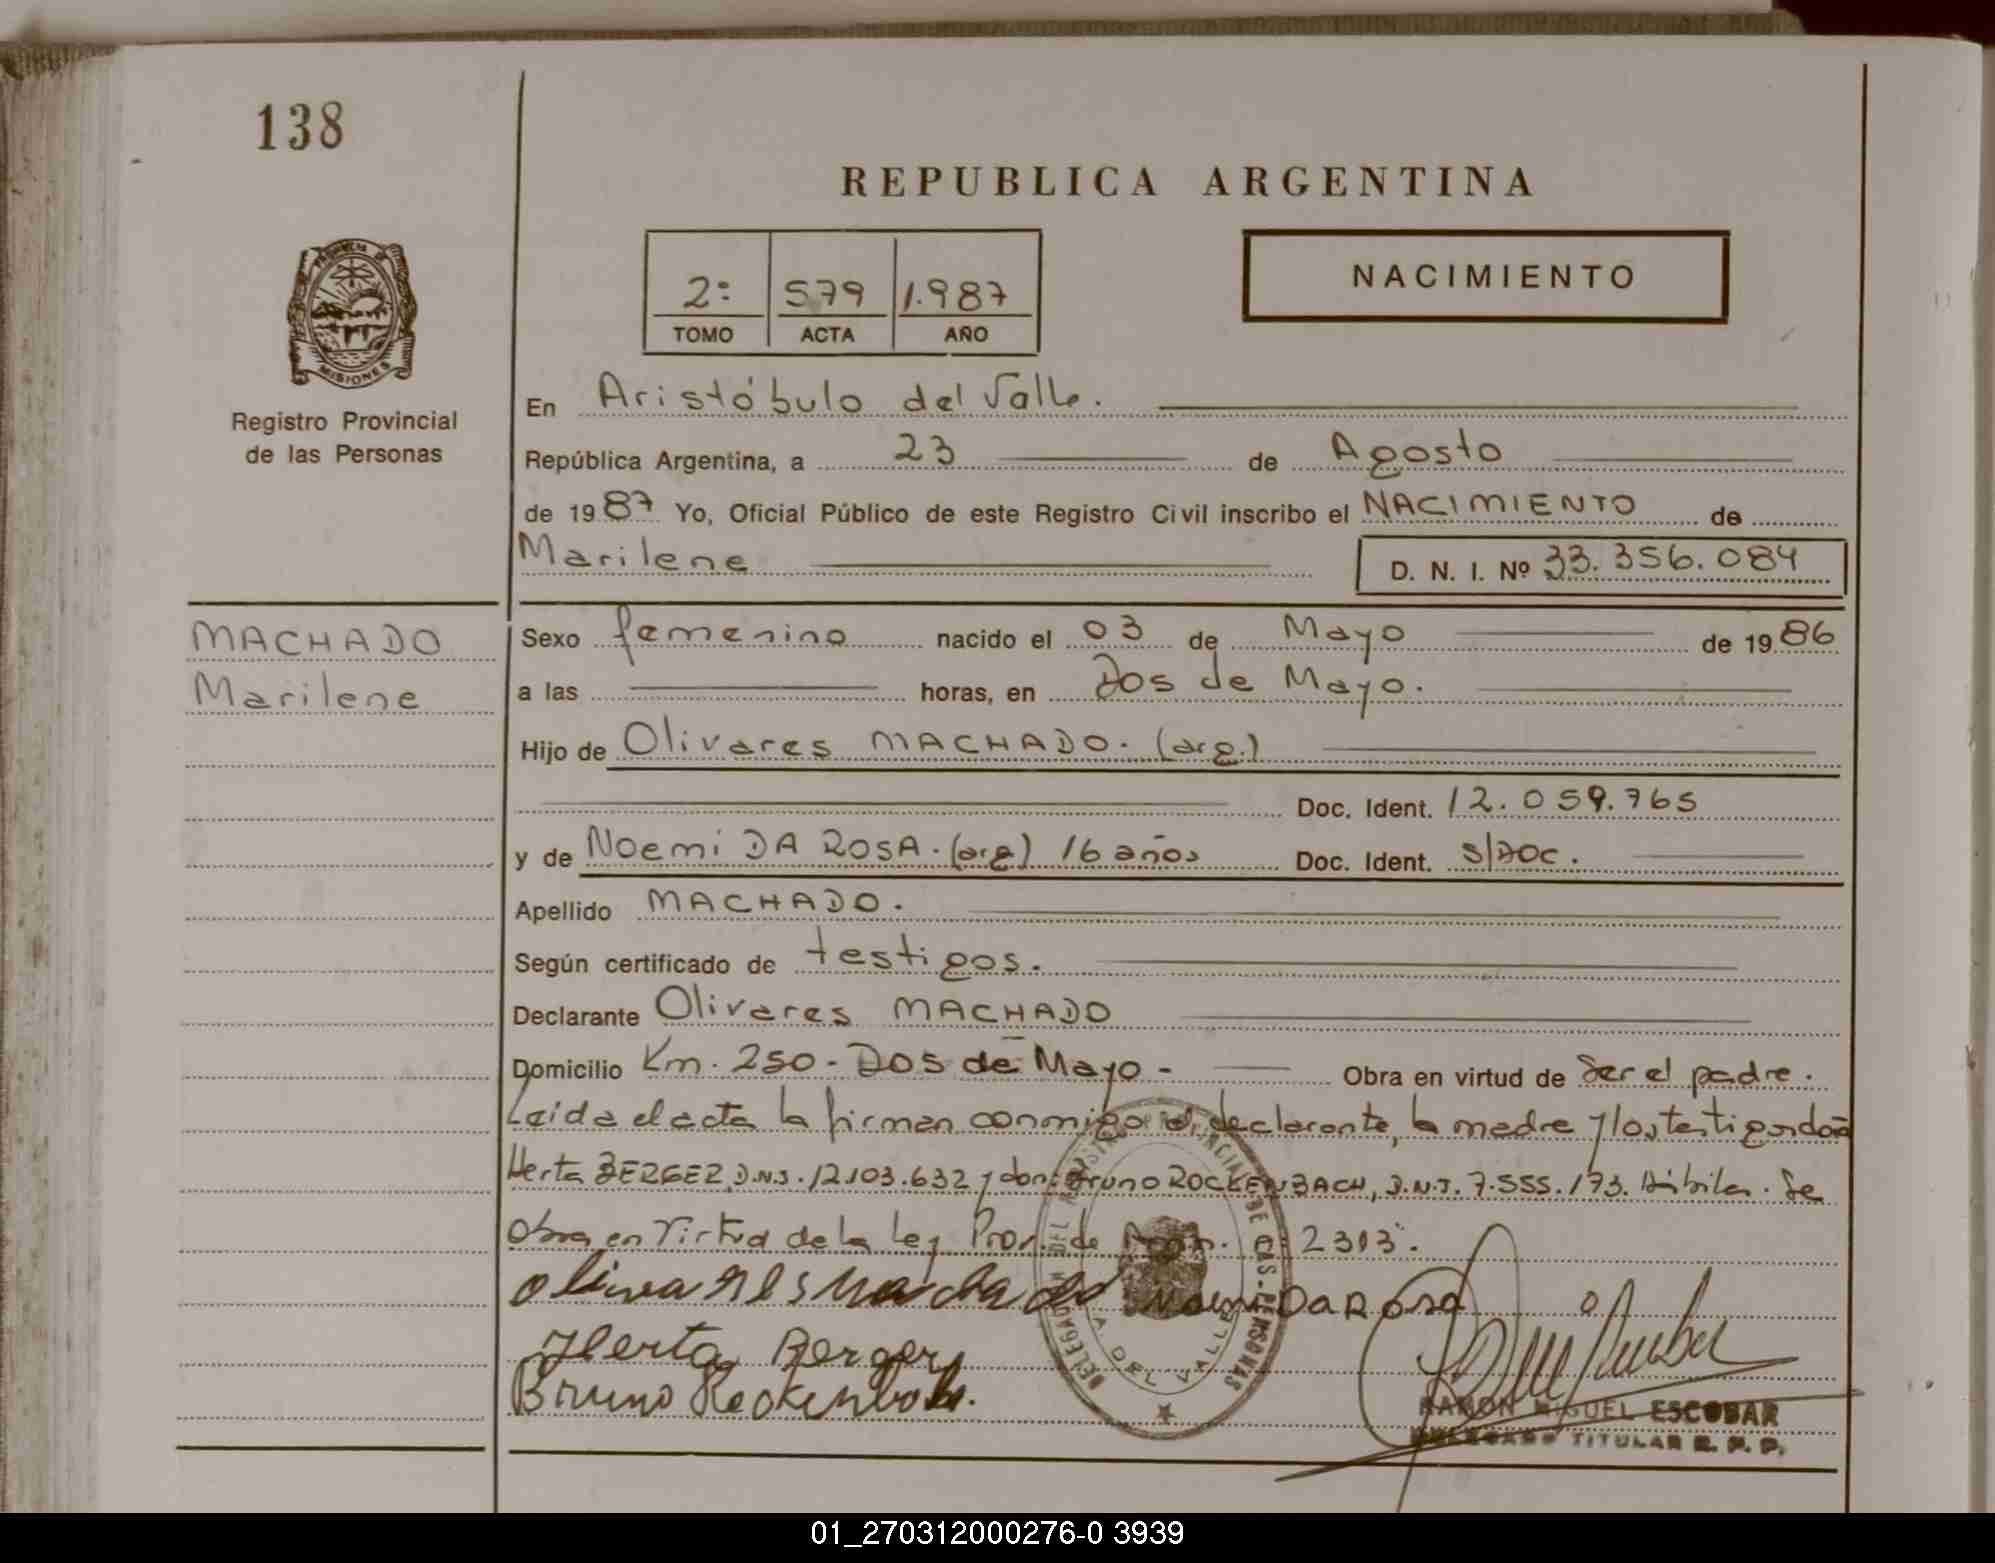 138
REPUBLICA ARGENTINA
PROVINCIA DE
MISIONES
Registro Provincial
de las Personas
2º 579 1.987
TOMO ACTA AÑO
NACIMIENTO
En Aristóbulo del Valle.
República Argentina, a 23 de Agosto
de 1987 Yo, Oficial Público de este Registro Civil inscribo el NACIMIENTO de
Marilene D. N. I. Nº 33.356.084
MACHADO
Marilene
Sexo femenino nacido el 03 de Mayo de 1986
a las horas, en Dos de Mayo.
Hijo de Olivares MACHADO. (arg.)
Doc. Ident. 12.059.765
y de Noemi DA ROSA. (arg) 16 años Doc. Ident. S/DOC.
Apellido MACHADO.
Según certificado de testigos.
Declarante Olivares MACHADO
Domicilio Km. 250 - Dos de Mayo - Obra en virtud de Ser el padre.
Leida el acta la firman conmigo el declarante, la madre y los testigos doña
Herta BERGER, D.N.I. 12.103.632 y don: Bruno ROCKENBACH, D.N.I. 7.555.173. Hábiles. Se
obra en Virtud de la Ley Prov. de 2313.
Olivares Machado Noemi DA ROSA
Herta Berger
Bruno Rockenbach.
DELEGACION DEL REGISTRO PROVINCIAL DE LAS PERSONAS
A. DEL VALLE
RAMON MIGUEL ESCOBAR
DELEGADO TITULAR R. P. P.
01_270312000276-0 3939